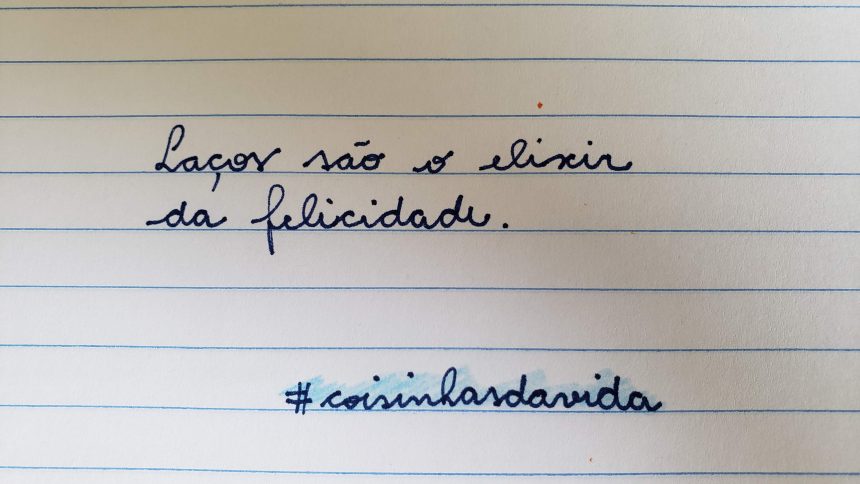 Laços são o elixir
da felicidade.
#coisinhasdavida